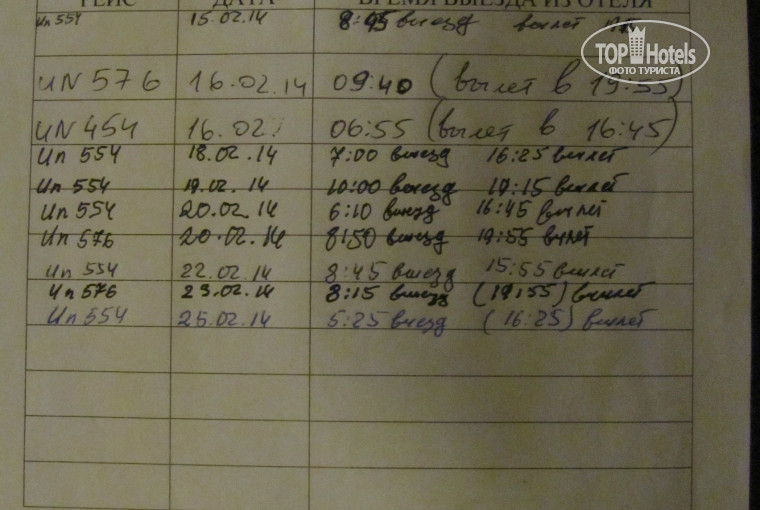 РЕЙС ДАТА ВРЕМЯ ВЫЕЗДА ИЗ ОТЕЛЯ
TOP Hotels
ФОТО ТУРИСТА
Un 554 15.02.14 8:45 выезд вылет
UN 576 16.02.14 09:40 (вылет в 19:55)
UN 454 16.02. 06:55 (вылет в 16:45)
Un 554 18.02.14 7:00 выезд 16:25 вылет
Un 554 19.02.14 10:00 выезд 17:15 вылет
Un 554 20.02.14 6:10 выезд 16:45 вылет
Un 576 20.02.14 8:50 выезд 19:55 вылет
Un 554 22.02.14 8:45 выезд 15:55 вылет
Un 576 23.02.14 8:15 выезд (19:55) вылет
Un 554 25.02.14 5:25 выезд (16:25) вылет